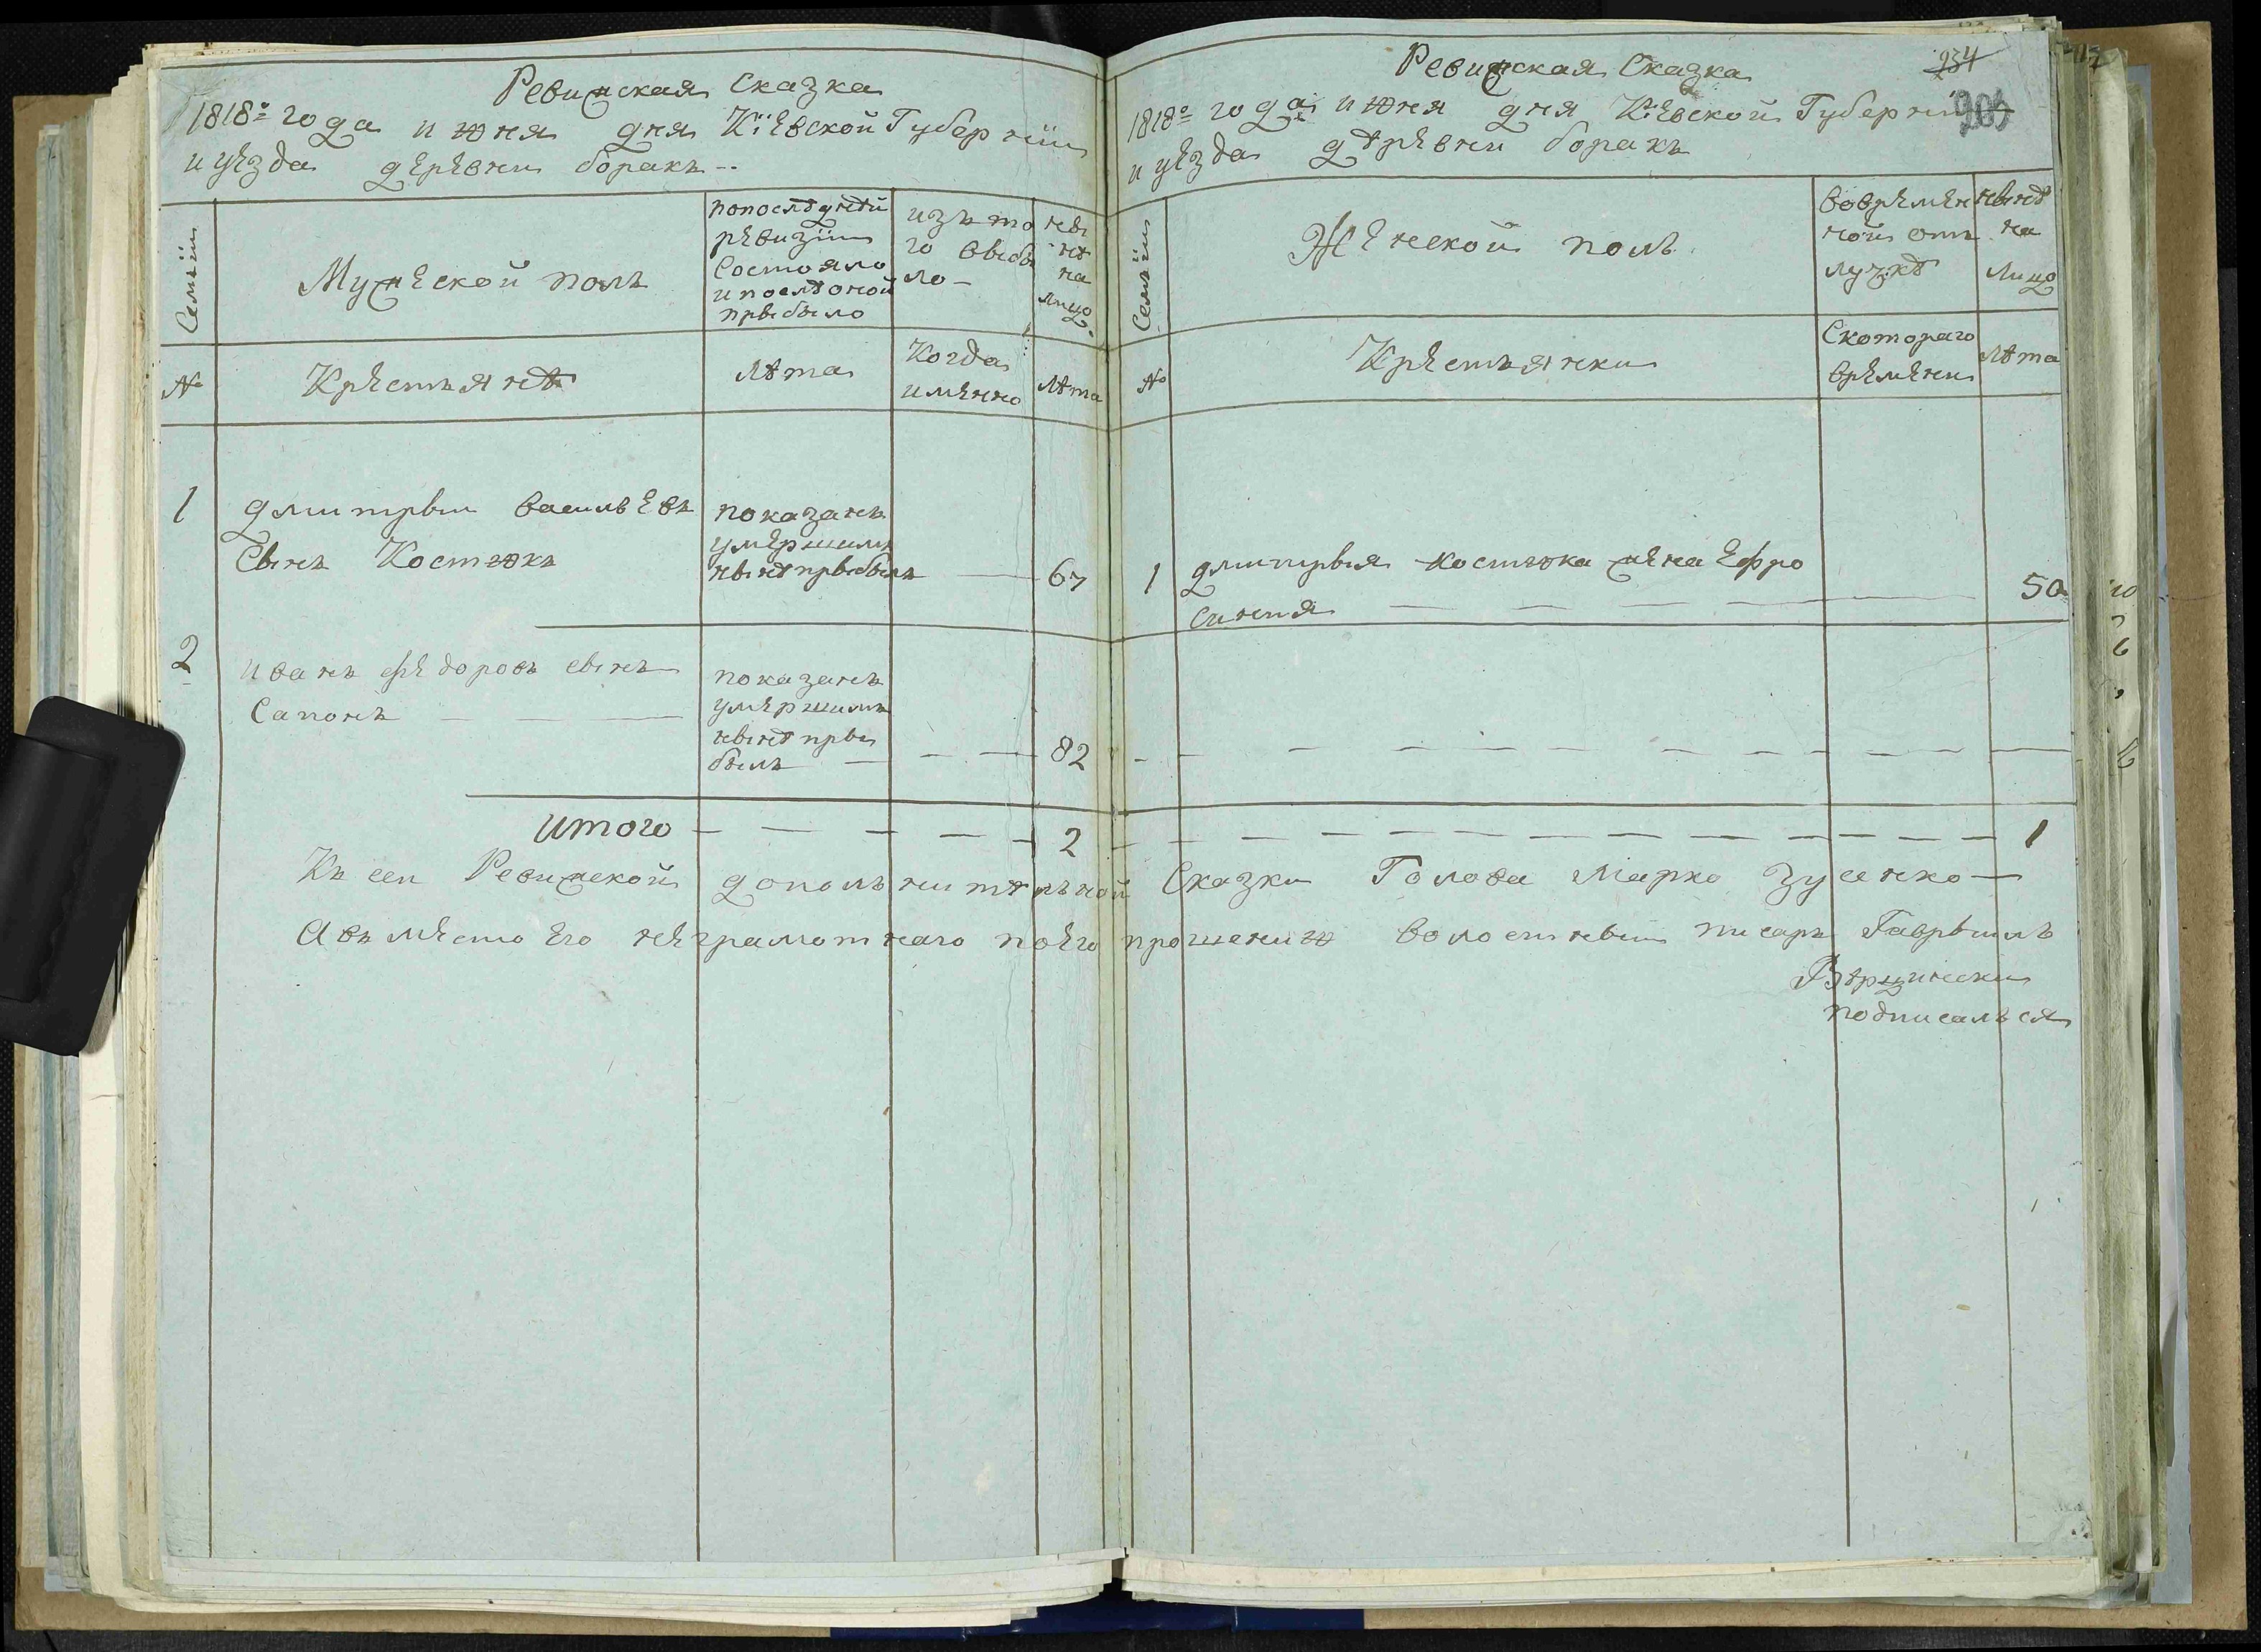 Ревижская Сказка
1818го года июня дня Кіевской Губерніи
и уезда деревни боракъ
Семьіи
Мужеской полъ
попоследнѣй
ревизіи
Состояло
и послѣ оной
прыбыло
изъ то
го выбы
ло
ны
нѣ
на
лицо
№
Крестьянѣ
лѣта
Когда
именно
лѣта
1
дмитрыи васильевъ
Сынъ Костюкъ
показанъ
умершимъ
нынѣ прыбылъ
67
2
иванъ федоровъ сынъ
Сапонъ
показанъ
умершимъ
нынѣ пры
былъ
82
итого
2
Ревижская Сказка
234
205
1818го года июня дня Кіевской Губерніи
и уезда дѣревни боракъ
Семьіи
Женской полъ
вовремен
ной отъ
лучкѣ
нынѣ
на
Лицо
№
Крестьянки
Скотораго
времени
лѣта
1
дмитрыя костюка жена Ефро
синия
50
1
Къ сеи Ревижской дополънитѣльной Сказки Голова Марко Зуенко
А въместо его неграмотнаго поего прошению волостныи писаръ Гаврыилъ
подписалъся